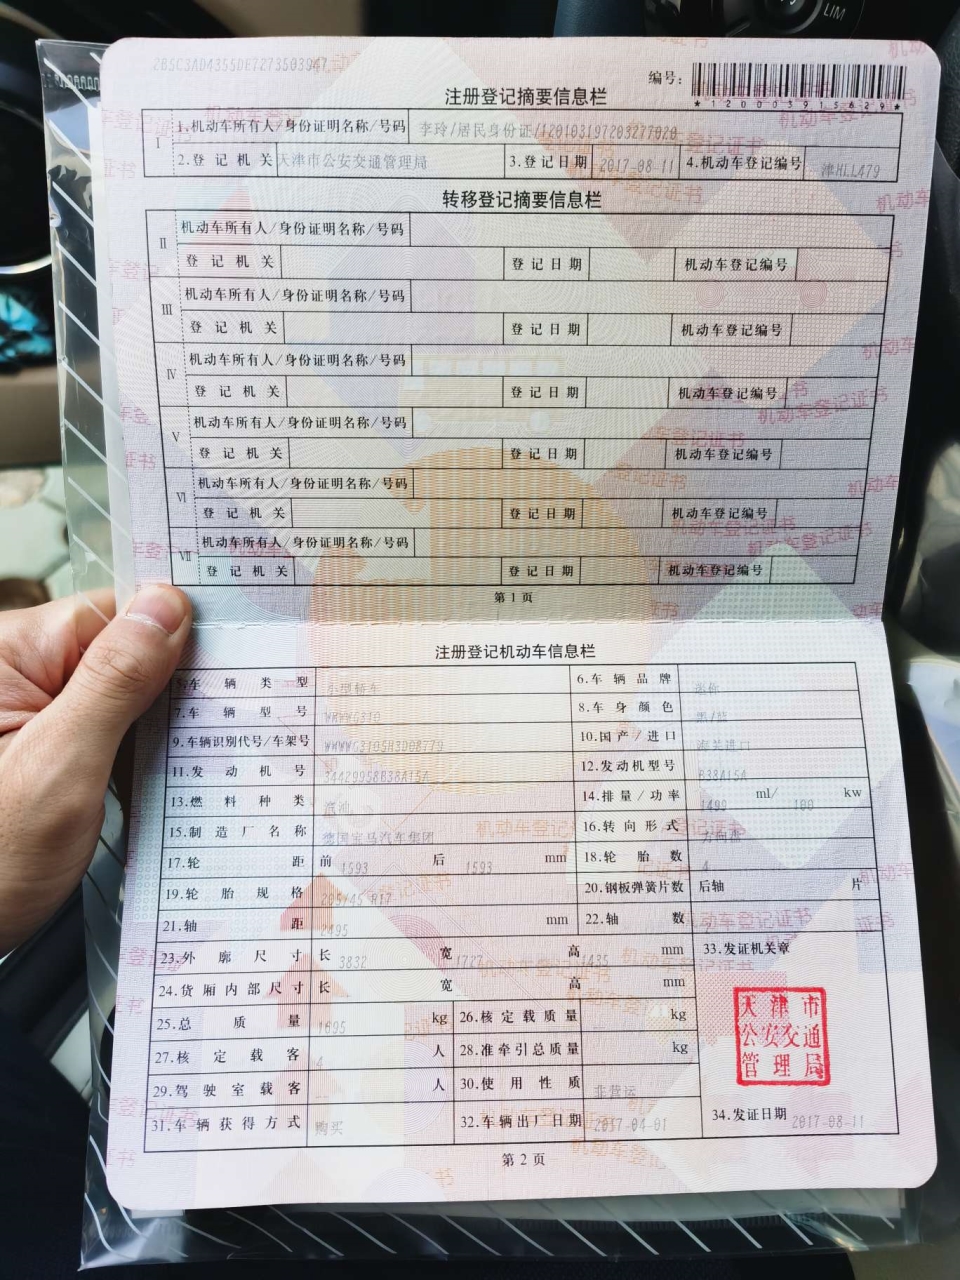 编号：
*120003915629*
注册登记摘要信息栏
I
1.机动车所有人/身份证明名称/号码 李玲/居民身份证/120103197203277020
2.登记机关 天津市公安交通管理局 3.登记日期 2017-08-11 4.机动车登记编号 津HLL479
转移登记摘要信息栏
II 机动车所有人/身份证明名称/号码
登记机关 登记日期 机动车登记编号
III 机动车所有人/身份证明名称/号码
登记机关 登记日期 机动车登记编号
IV 机动车所有人/身份证明名称/号码
登记机关 登记日期 机动车登记编号
V 机动车所有人/身份证明名称/号码
登记机关 登记日期 机动车登记编号
VI 机动车所有人/身份证明名称/号码
登记机关 登记日期 机动车登记编号
VII 机动车所有人/身份证明名称/号码
登记机关 登记日期 机动车登记编号
第1页
注册登记机动车信息栏
5.车辆类型 小型轿车 6.车辆品牌
7.车辆型号 8.车身颜色
9.车辆识别代号/车架号 10.国产/进口 海关进口
11.发动机号 34429958B38A15A 12.发动机型号 B38A15A
13.燃料种类 汽油 14.排量/功率 1499 ml/ 100 kw
15.制造厂名称 德国宝马汽车集团 16.转向形式 方向盘
17.轮距 前 1593 后 1593 mm 18.轮胎数 4
19.轮胎规格 205/45 R17 20.钢板弹簧片数 后轴 片
21.轴距 2495 mm 22.轴数
23.外廓尺寸 长 3832 宽 1727 高 1435 mm 33.发证机关章
24.货厢内部尺寸 长 宽 高 mm
25.总质量 1695 kg 26.核定载质量 kg
27.核定载客 4 人 28.准牵引总质量 kg
29.驾驶室载客 人 30.使用性质 非营运
31.车辆获得方式 购买 32.车辆出厂日期 2017-04-01 34.发证日期 2017-08-11
天津市
公安交通
管理局
第2页